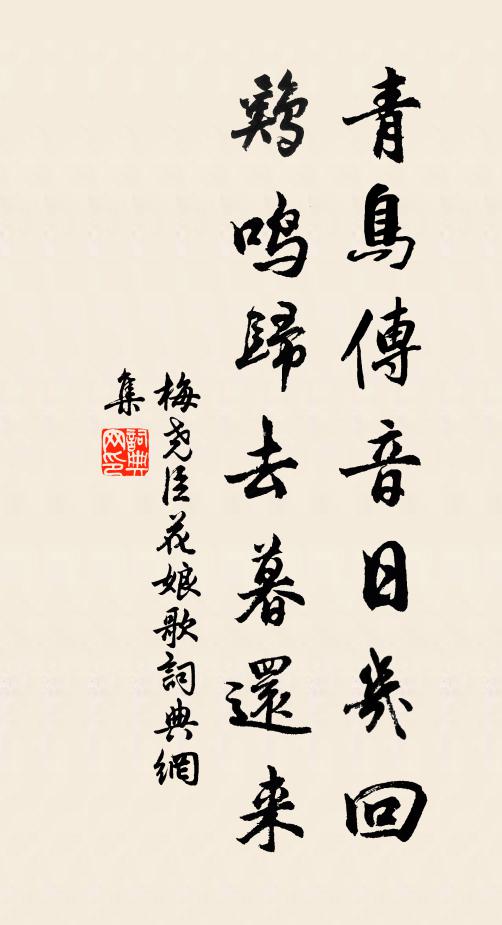 青鳥傳音日幾回
鷄鳴歸去暮還来
梅尭臣花娘歌詞典網
集
詞典
网印